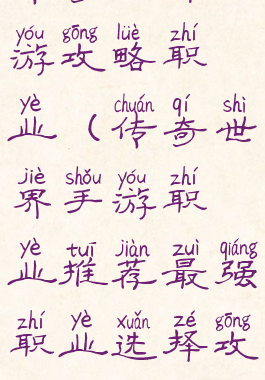 yóu gōng lüè zhí
游攻略职
yè chuán qí shì
业（传奇世
jiè shǒu yóu zhí
界手游职
yè tuī jiàn zuì qiáng
业推荐最强
zhí yè xuǎn zé gōng
职业选择攻